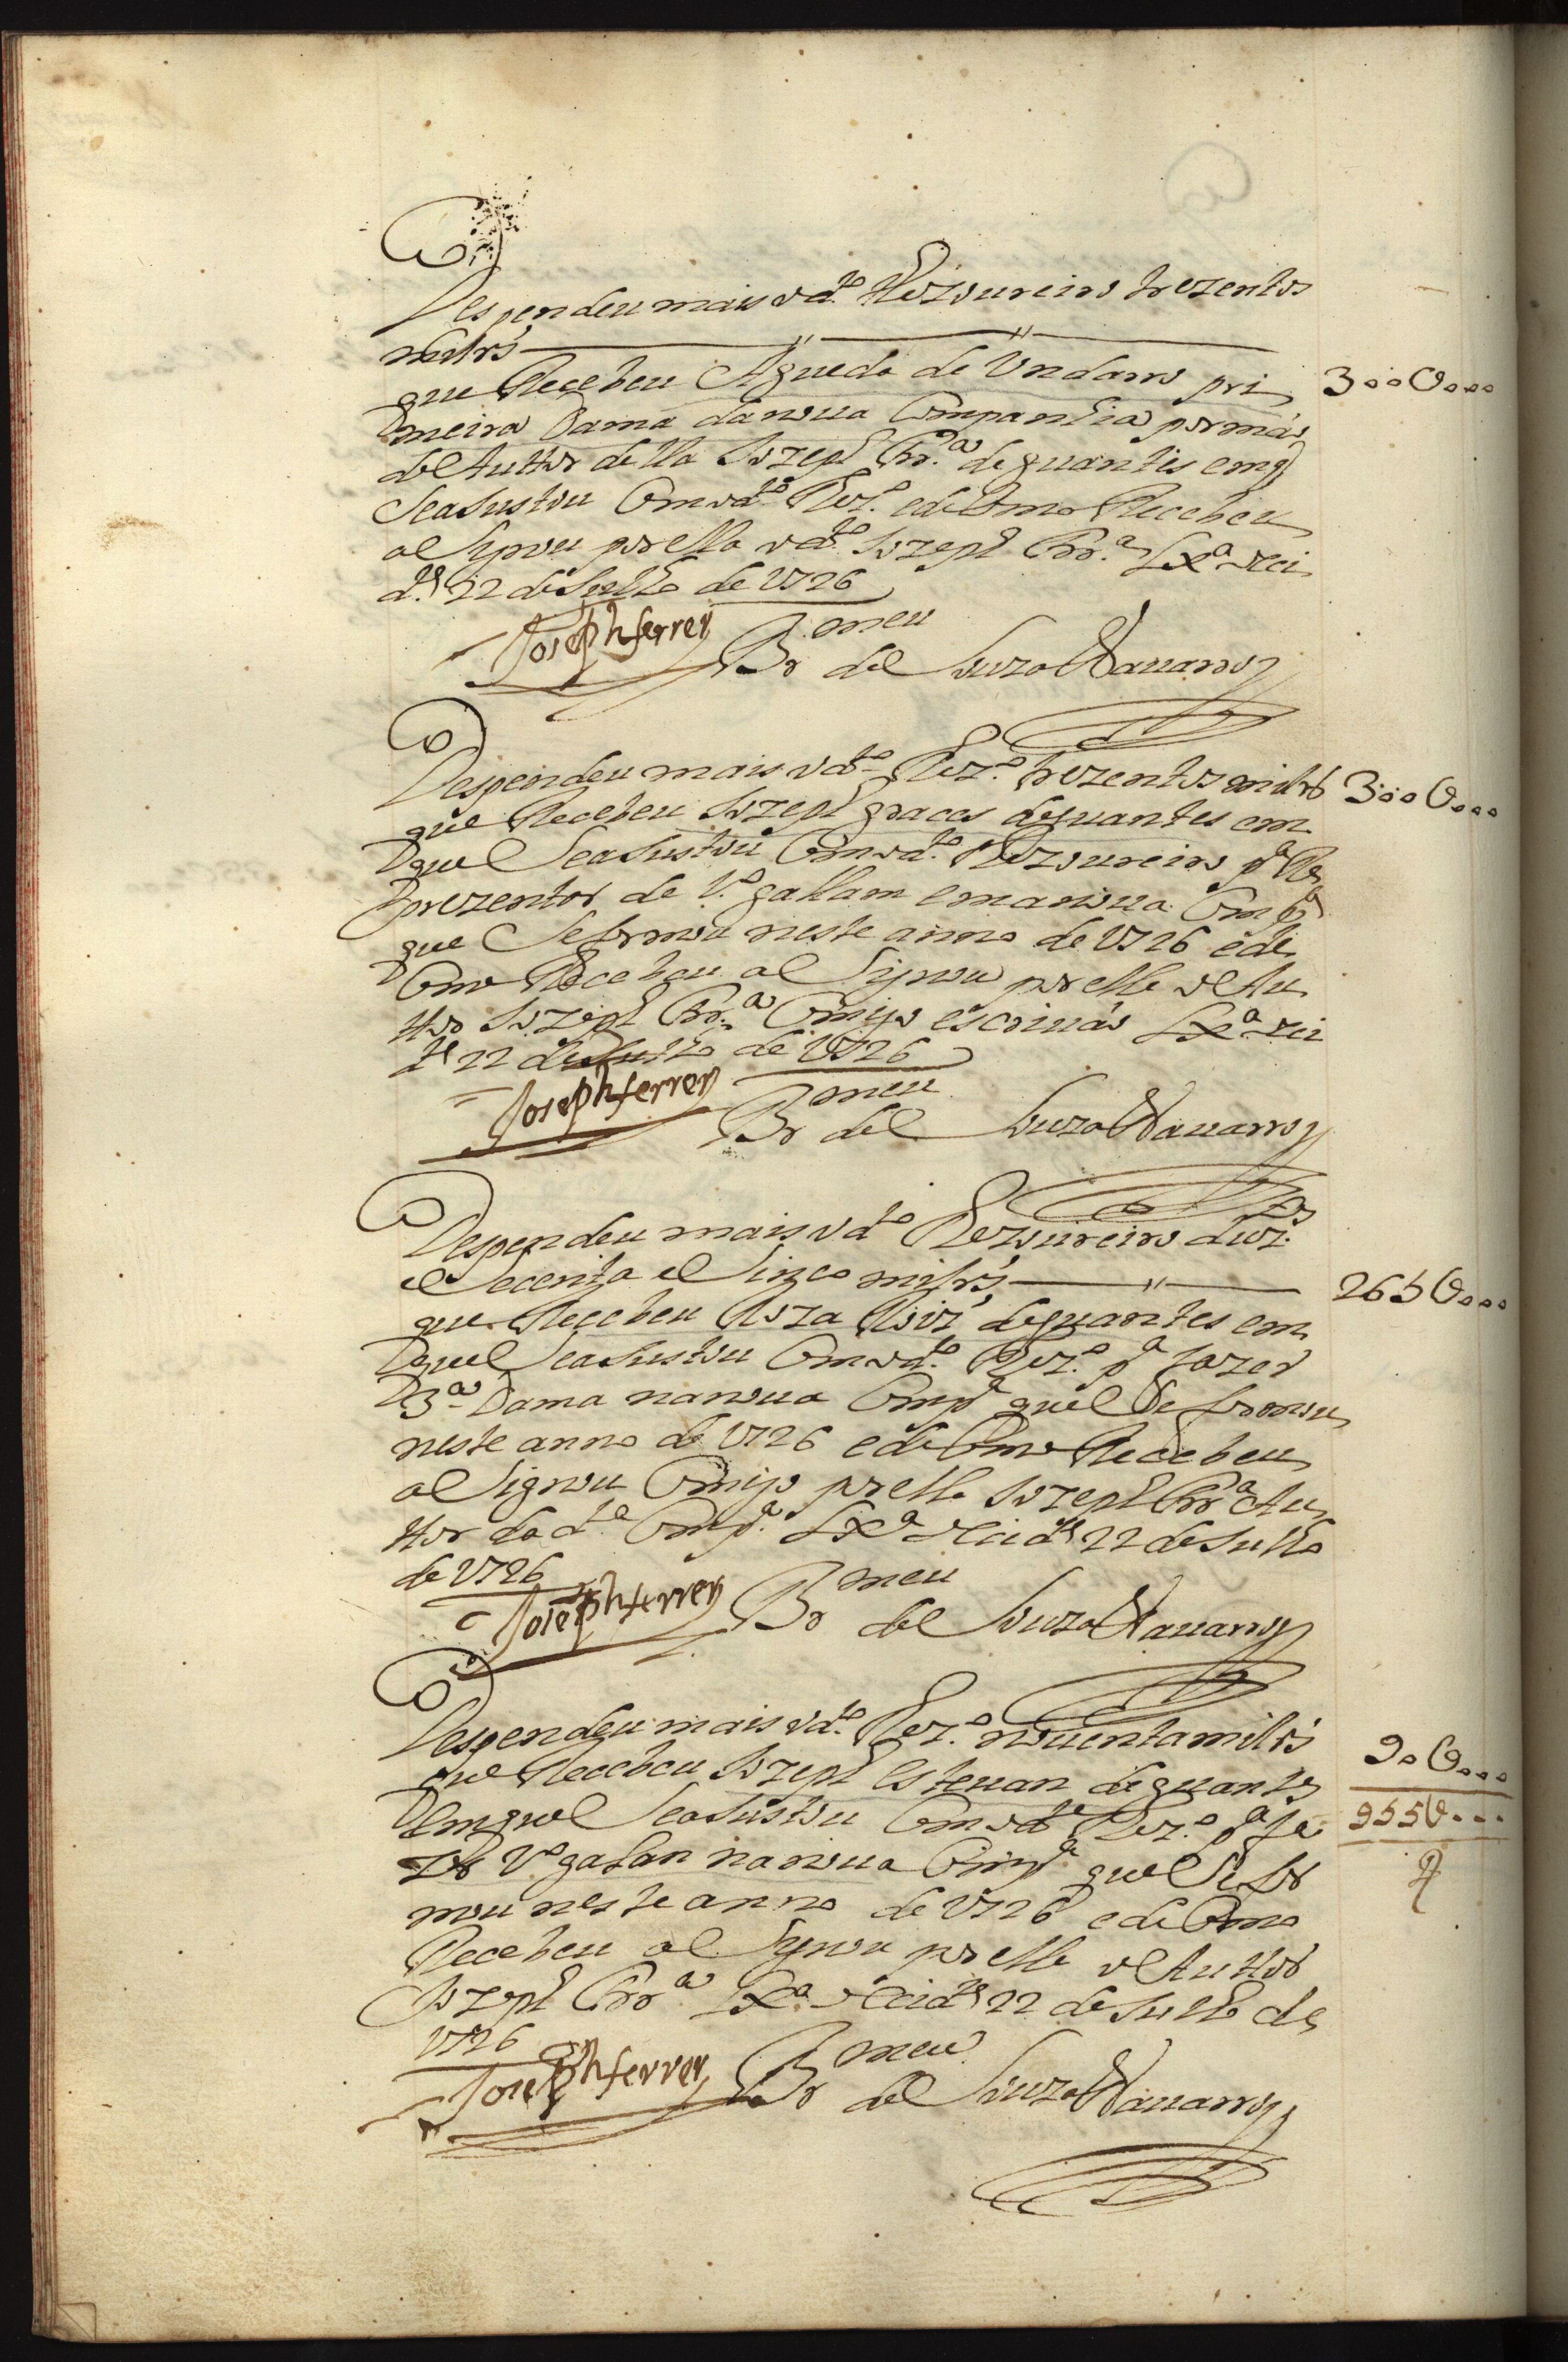 Despendeu mais o d.to Thezoureiro trezentos
mil rs
que Recebeu Agueda de Ondarro pri 300U000
meira Dama da noua Companhia por mão
do Author della Jozeph Frr.a de guantes em q
Se aJustou Com o d.to Thez.o e de Como Recebeu
aSignou por ella o d.to Jozeph Frr.a Lx.a occi
d.l 22 de Julho de 1726
Joseph ferrer Bmeu
Br de Souza Nauarro
Despendeu mais o d.to Thez.o trezentos mil rs 300U000
que Recebeu Jozeph graces de guantes em
que Se aJustou Com o d.to Thezoureiro p.a Re
prezentar de 1.o gallam em a noua Comp.a
que Se formou neste anno de 1726 e de
Como Recebeu aSignou por elle o Au
thor Jozeph Frr.a Comigo escriuão Lx.a occi
d.l 22 de Julho de 1726
Joseph ferrer Bmeu
Br de Souza Nauarro
Despendeu mais o d.to Thezoureiro duz.tos
e Secenta e Sinco mil rs 265U000
que Recebeu Roza Roiz de guantes em
que Se aJustou Com o d.to Thez.o p.a fazer
3.a Dama na noua Comp.a que Se formou
neste anno de 1726 e de Como Recebeu
aSignou Comigo por ella Jozeph Frr.a Au
thor da d.a Comp.a Lx.a occid.l 22 de Julho
de 1726
Joseph ferrer Bmeu
Br de Souza Nauarro
Despendeu mais o d.to Thez.o nouenta mil rs 90U000
que Recebeu Jozeph Esteuan de guantes
Em que Se aJustou Com o d.to Thez.o p.a fa 955U000
zer V.o galan na noua Comp.a que Se for
mou neste anno de 1726 e de Como
Recebeu aSignou por elle o Author
Jozeph Frr.a Lx.a occid.l 22 de Julho de
1726
Joseph ferrer Bmeu
Br de Souza Nauarro